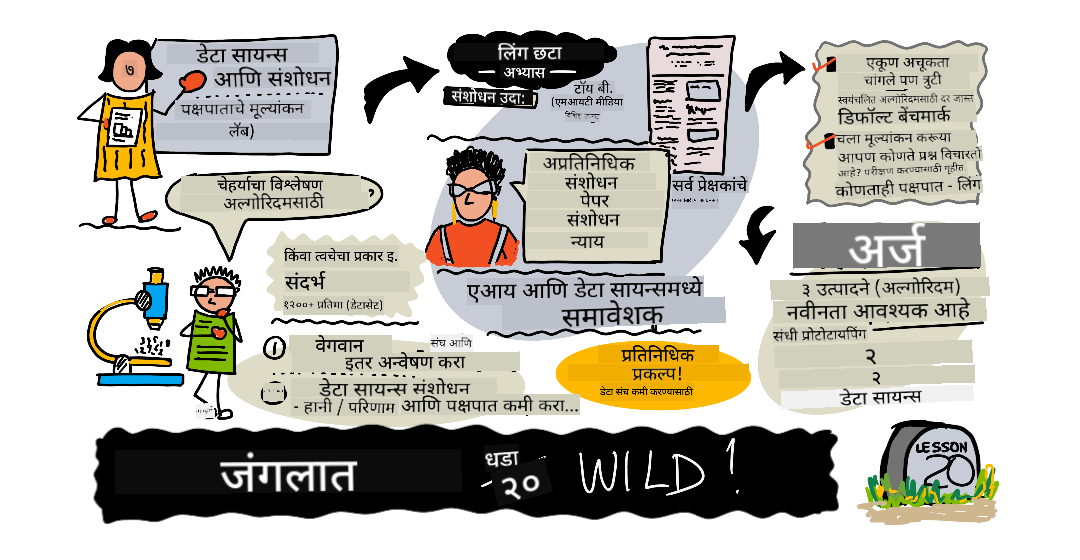 ७
डेटा सायन्स
आणि संशोधन
पक्षपाताचे मूल्यांकन
लॅब)
लिंग छटा
अभ्यास
संशोधन उदा:
टॉय बी.
(एमआयटी मीडिया
एकूण अचूकता
चांगले पण त्रुटी
स्वयंचलित अल्गोरिदमसाठी दर जास्त
डिफॉल्ट बेंचमार्क
चला मूल्यांकन करूया
आपण कोणते प्रश्न विचारतो
आहे? परीक्षण करण्यासाठी गृहीत.
कोणताही पक्षपात - लिंग
चेहर्याचा विश्लेषण
अल्गोरिदमसाठी
?
अप्रतिनिधिक
संशोधन
पेपर
संशोधन
न्याय
सर्व प्रेक्षकांचे
किंवा त्वचेचा प्रकार इ.
संदर्भ
१२००+ प्रतिमा (डेटासेट)
एआय आणि डेटा सायन्समध्ये
समावेशक
अर्ज
३ उत्पादने (अल्गोरिदम)
नवीनता आवश्यक आहे
संधी प्रोटोटायपिंग
२
२
डेटा सायन्स
1 वेगवान
संघ आणि
इतर अन्वेषण करा
डेटा सायन्स संशोधन
- हानी / परिणाम आणि पक्षपात कमी करा...
प्रतिनिधिक
प्रकल्प!
डेटा संच कमी करण्यासाठी
जंगलात
धडा
- २०
WILD!
LESSON
20